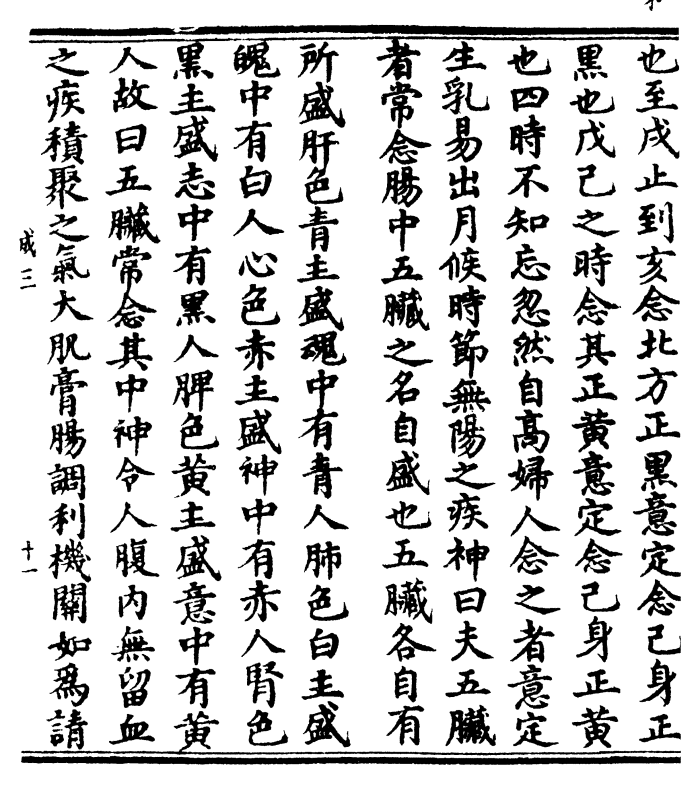 也至戌止到亥念北方正黒意定念己身正
黒也戊己之時念其正黄意定念己身正黄
也四時不知忘忽然自髙婦人念之者意定
生乳易出月候時節無陽之疾神曰夫五臟
者常念腸中五臟之名自盛也五臟各自有
所盛肝色青主盛魂中有青人肺色白主盛
魄中有白人心色赤主盛神中有赤人腎色
黒主盛志中有黒人脾色黄主盛意中有黄
人故曰五臟常念其中神令人腹内無留血
之疾積聚之氣大肌膏腸調利機關如爲請
成三
十一